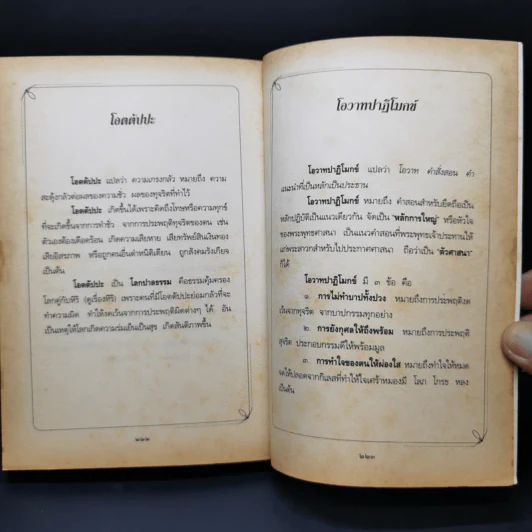 โอตตัปปะ
โอตตัปปะ แปลว่า ความเกรงกลัว หมายถึง ความ
สะดุ้งกลัวต่อผลของความชั่ว ผลของทุจริตที่ทำไว้
โอตตัปปะ เกิดขึ้นได้เพราะคิดถึงโทษหรือความทุกข์
ที่จะเกิดขึ้นจากการทำชั่ว จากการประพฤติทุจริตของตน เช่น
ตัวเองต้องเดือดร้อน เกิดความเสียหาย เสียทรัพย์สินเงินทอง
เสียอิสรภาพ หรือถูกคนอื่นตำหนิติเตียน ถูกสังคมรังเกียจ
เป็นต้น
โอตตัปปะ เป็น โลกปาลธรรม คือธรรมคุ้มครอง
โลกคู่กับหิริ (ดูเรื่องหิริ) เพราะคนที่มีโอตตัปปะย่อมกลัวที่จะ
ทำความผิด ทำให้งดเว้นจากการประพฤติผิดต่างๆ ได้ อัน
เป็นเหตุให้โลกเกิดความร่มเย็นเป็นสุข เกิดสันติภาพขึ้น
๒๒๒
โอวาทปาฏิโมกข์
โอวาทปาฏิโมกข์ แปลว่า โอวาท คำสั่งสอน คำ
แนะนำที่เป็นหลักเป็นประธาน
โอวาทปาฏิโมกข์ หมายถึง คำสอนสำหรับยึดถือเป็น
หลักปฏิบัติเป็นแนวเดียวกัน จัดเป็น "หลักการใหญ่" หรือหัวใจ
ของพระพุทธศาสนา เป็นแนวคำสอนที่พระพุทธเจ้าประทานให้
แก่พระสาวกสำหรับไปประกาศศาสนา ถือว่าเป็น "ตัวศาสนา"
ก็ได้
โอวาทปาฏิโมกข์ มี ๓ ข้อ คือ
๑. การไม่ทำบาปทั้งปวง หมายถึงการประพฤติงด
เว้นจากทุจริต จากบาปกรรมทุกอย่าง
๒. การยังกุศลให้ถึงพร้อม หมายถึงการประพฤติ
สุจริต ประกอบกรรมดีให้พร้อมมูล
๓. การทำใจของตนให้ผ่องใส หมายถึงทำใจให้หมด
จดให้ปลอดจากกิเลสที่ทำให้ใจเศร้าหมองมี โลภ โกรธ หลง
เป็นต้น
๒๒๓